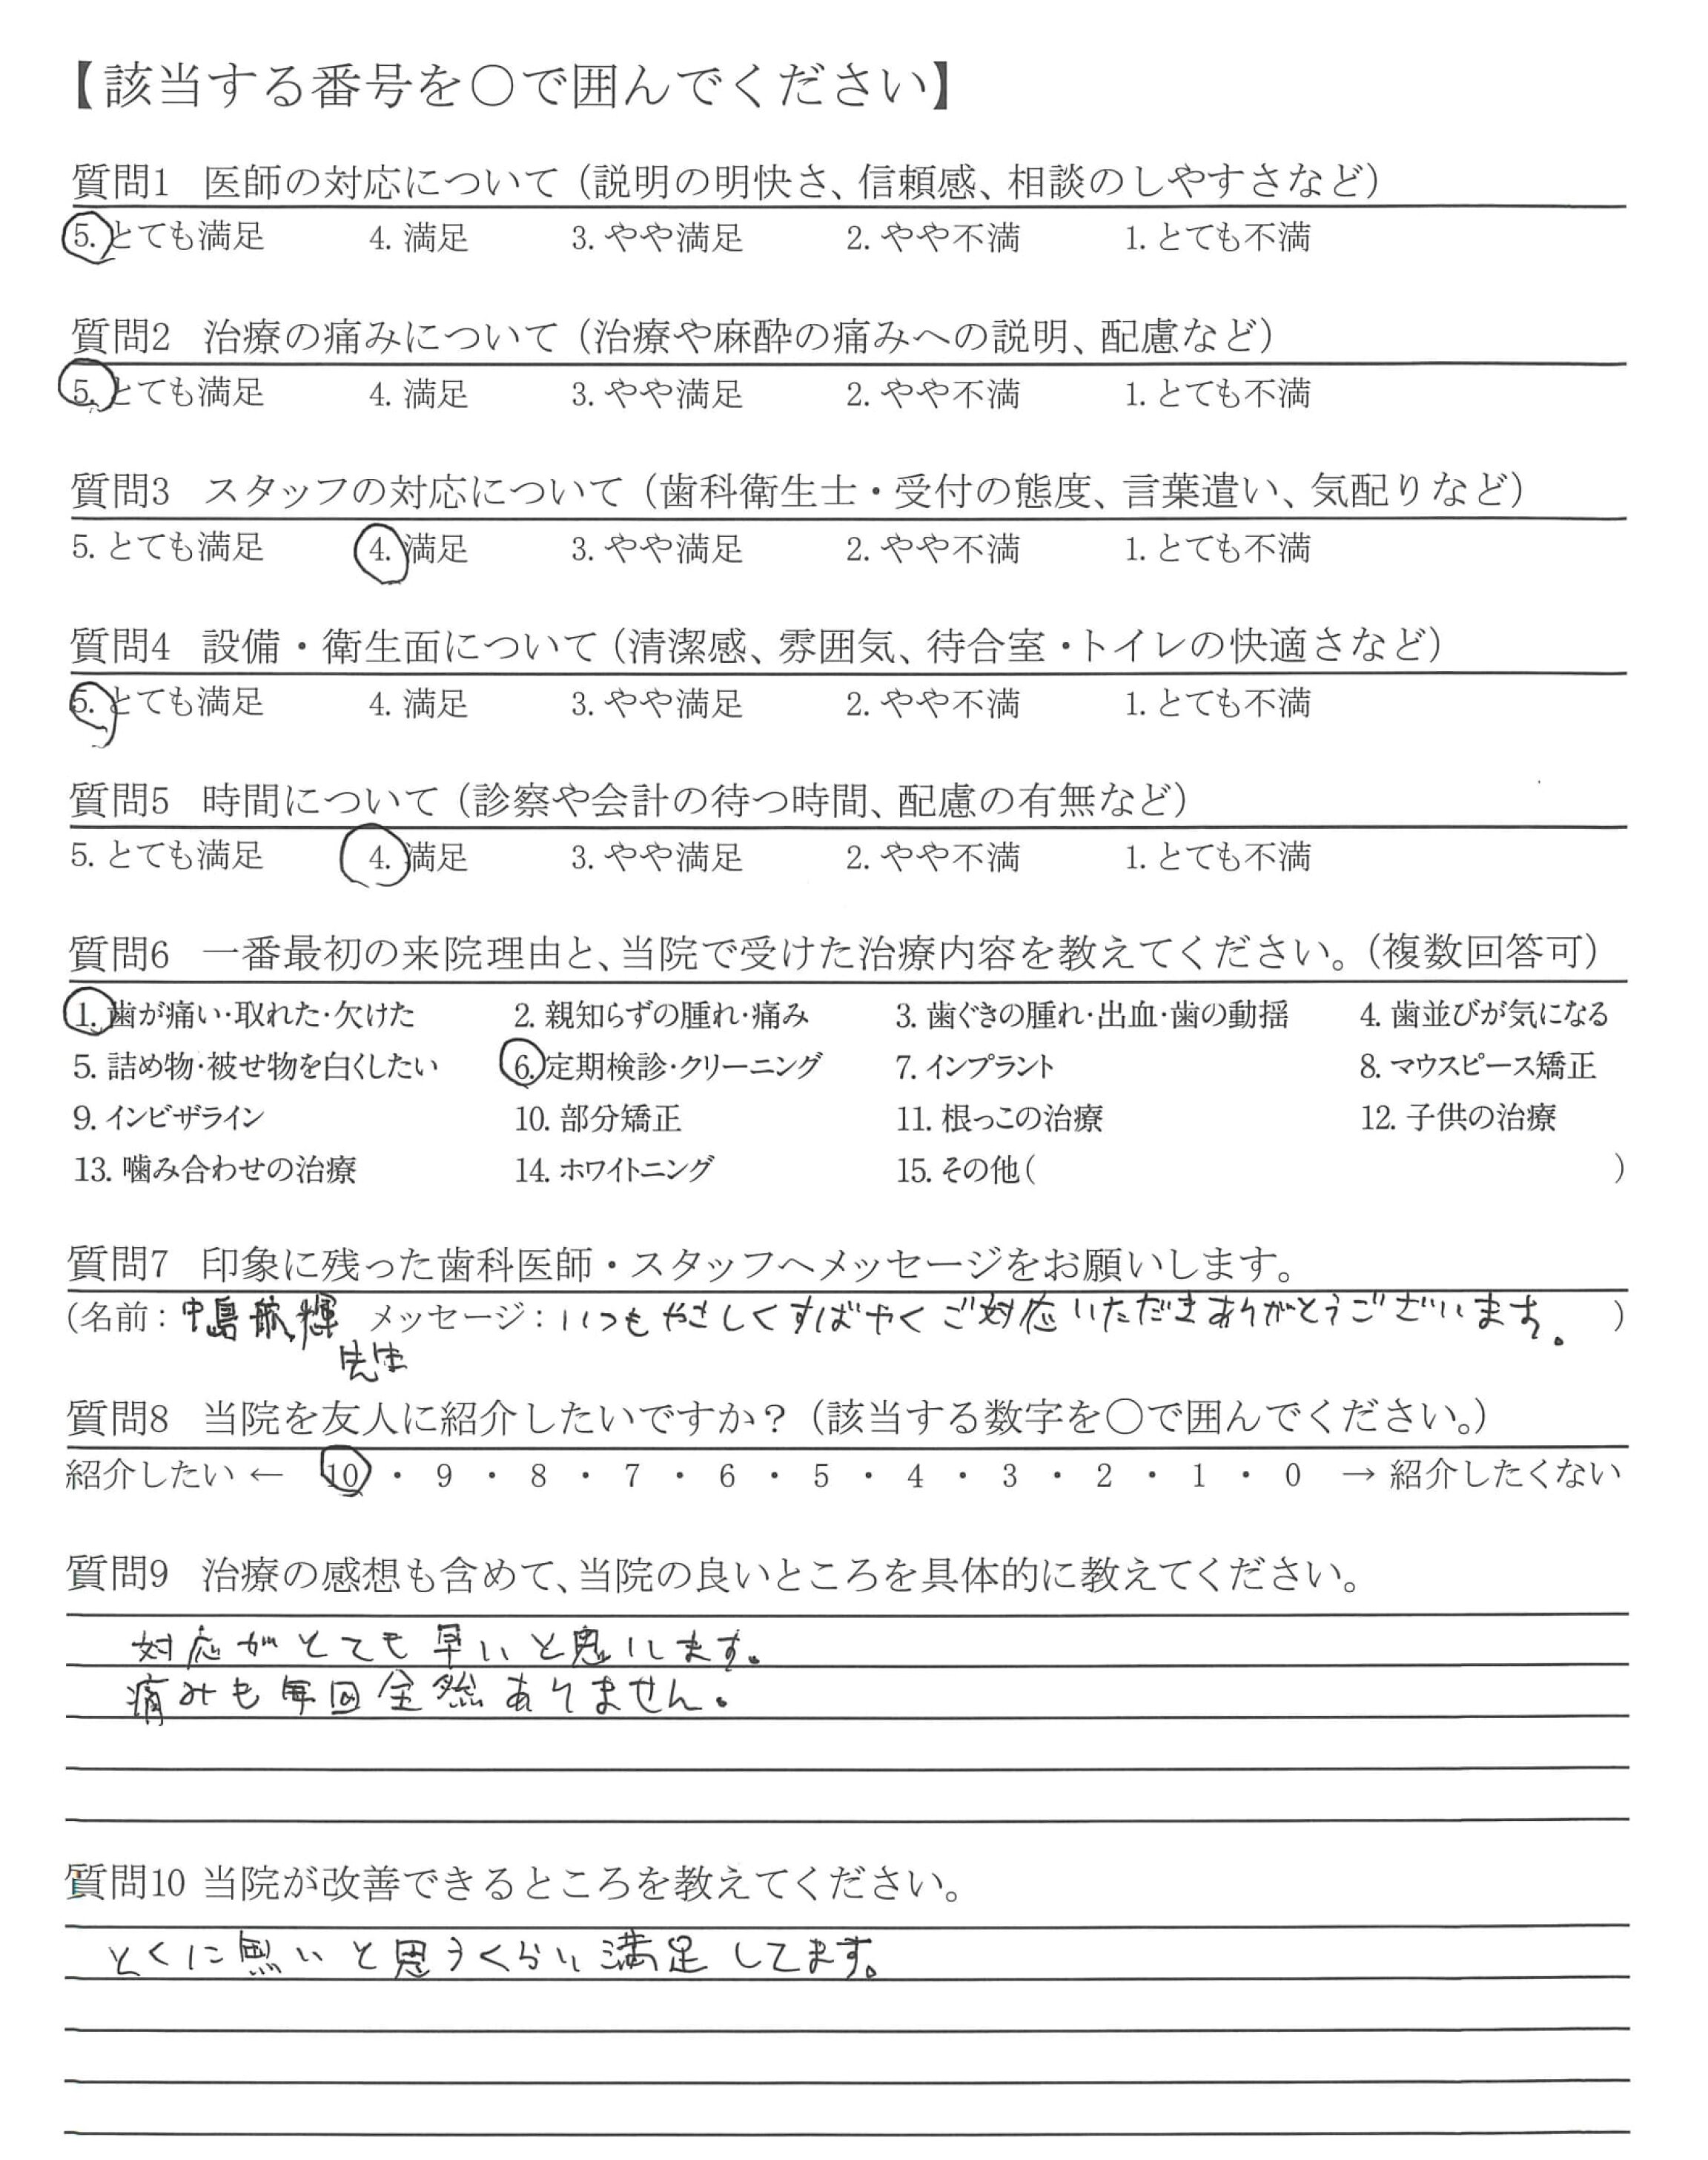 【該当する番号を○で囲んでください】
質問1 医師の対応について（説明の明快さ、信頼感、相談のしやすさなど）
5. とても満足 4. 満足 3. やや満足 2. やや不満 1. とても不満
質問2 治療の痛みについて（治療や麻酔の痛みへの説明、配慮など）
5. とても満足 4. 満足 3. やや満足 2. やや不満 1. とても不満
質問3 スタッフの対応について（歯科衛生士・受付の態度、言葉遣い、気配りなど）
5. とても満足 4. 満足 3. やや満足 2. やや不満 1. とても不満
質問4 設備・衛生面について（清潔感、雰囲気、待合室・トイレの快適さなど）
5. とても満足 4. 満足 3. やや満足 2. やや不満 1. とても不満
質問5 時間について（診察や会計の待つ時間、配慮の有無など）
5. とても満足 4. 満足 3. やや満足 2. やや不満 1. とても不満
質問6 一番最初の来院理由と、当院で受けた治療内容を教えてください。（複数回答可）
1. 歯が痛い・取れた・欠けた 2. 親知らずの腫れ・痛み 3. 歯ぐきの腫れ・出血・歯の動揺 4. 歯並びが気になる
5. 詰め物・被せ物を白くしたい 6. 定期検診・クリーニング 7. インプラント 8. マウスピース矯正
9. インビザライン 10. 部分矯正 11. 根っこの治療 12. 子供の治療
13. 噛み合わせの治療 14. ホワイトニング 15. その他（ ）
質問7 印象に残った歯科医師・スタッフへメッセージをお願いします。
（名前：中島航輝 メッセージ：いつもやさしくすばやくご対応いただきありがとうございます。 ）
先生
質問8 当院を友人に紹介したいですか？（該当する数字を○で囲んでください。）
紹介したい ← 10 ・ 9 ・ 8 ・ 7 ・ 6 ・ 5 ・ 4 ・ 3 ・ 2 ・ 1 ・ 0 → 紹介したくない
質問9 治療の感想も含めて、当院の良いところを具体的に教えてください。
対応がとても早いと思います。
痛みも毎回全然ありません。
質問10 当院が改善できるところを教えてください。
とくに無いと思うくらい満足してます。